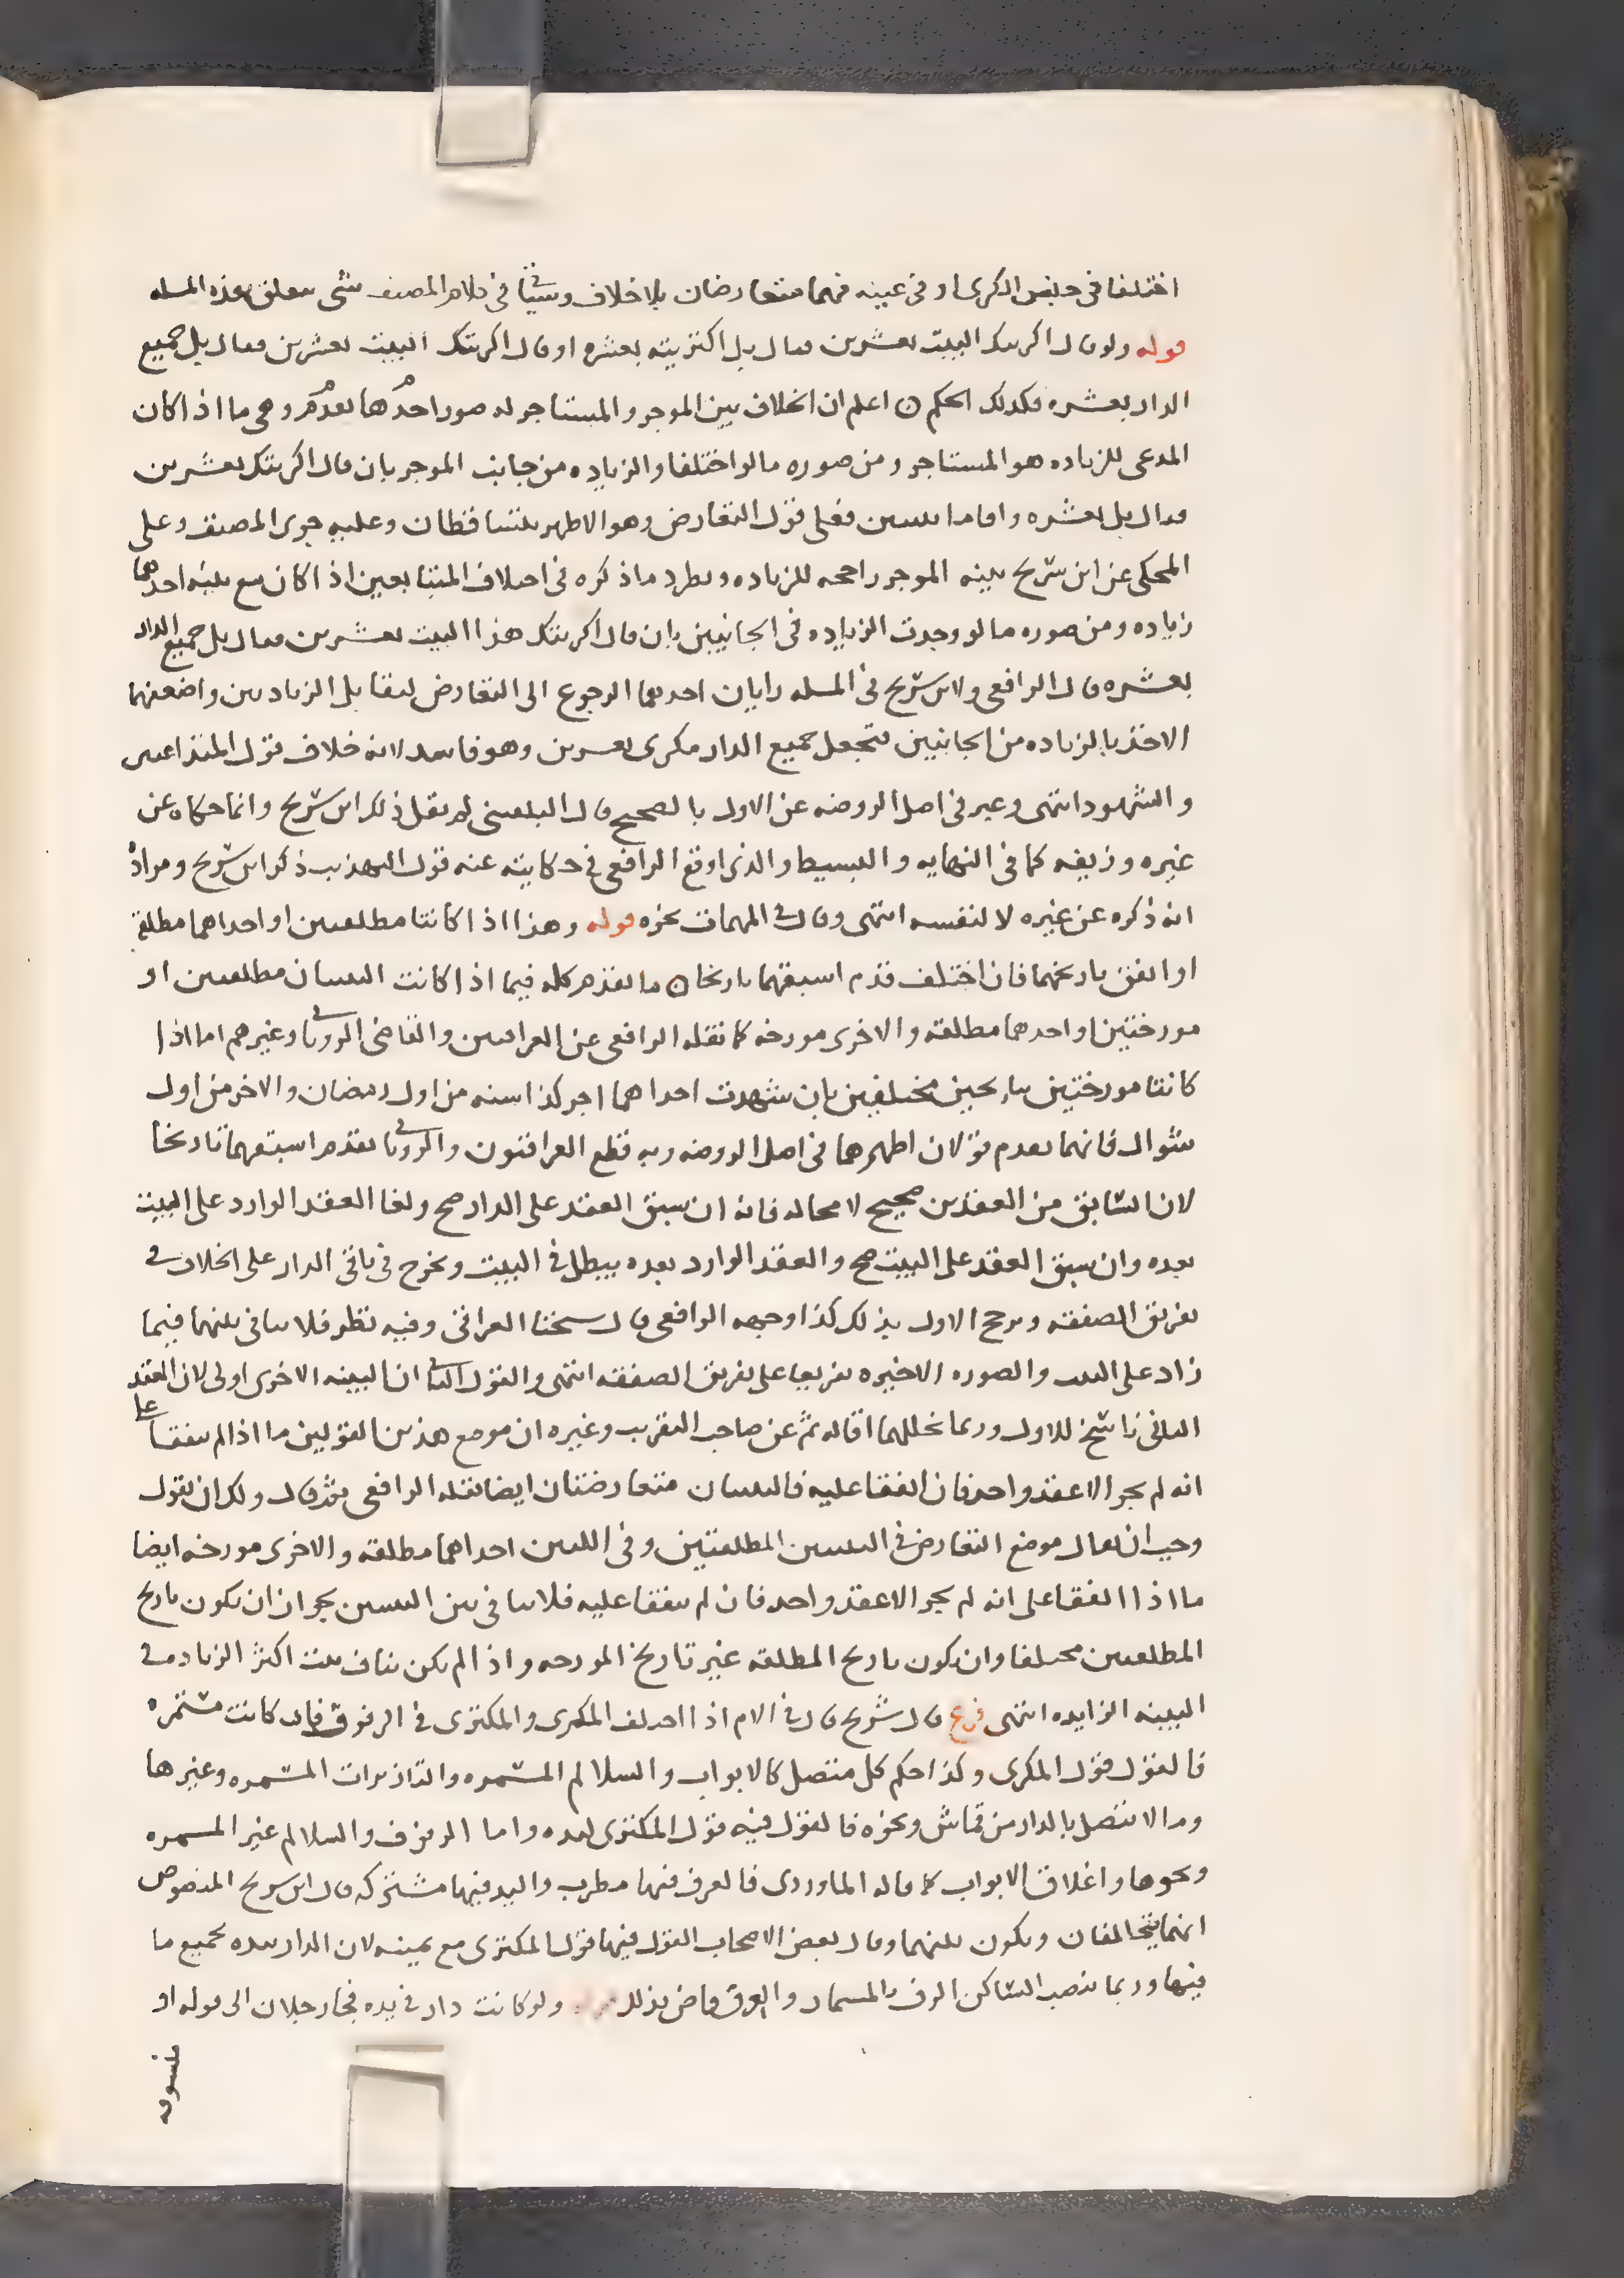 اختلفا في جنس الكرى او في عينه فهما متعارضان بلا خلاف وسيأتي في كلام المصنف شي معلق بهذه المسله
قوله ولو قال اكريتك البيت بعشرين فقال بل اكتريته بعشره او قال اكريتك البيت بعشرين فقال بل جميع
الدار بعشره فكذلك الحكم ن اعلم ان الخلاف بين الموجر والمستاجر له صور احدها تقدم وهي ما اذا كان
المدعي للزياده هو المستاجر ومن صوره ما لو اختلفا والزياده من جانب الموجر بان قال اكريتك بعشرين
فقال بل بعشره واقاما بينتين فعلى قول التعارض وهو الاظهر يتساقطان وعليه جرى المصنف وعلى
المحكي عن ابن سريج بينه الموجر راجحه للزياده ويطرد ما ذكره في اختلاف المتبايعين اذا كان مع بينه احدهما
زياده ومن صوره ما لو وجدت الزياده في الجانبين بان قال اكريتك هذا البيت بعشرين فقال بل جميع الدار
بعشره قال الرافعي ولابن سريج في المسله رايان احدهما الرجوع الى التعارض لتقابل الزيادتين واضعفهما
الاخذ بالزياده من الجانبين فتجعل جميع الدار مكرى بعشرين وهو فاسد لانه خلاف قول المتداعيين
والشهود انتهى وعبر في اصل الروضه عن الاول بالصحيح قال البلقيني لم يقل ذلك ابن سريج وانما حكاه عن
غيره وزيفه كما في النهايه والبسيط والذي اوقع الرافعي في حكايته عنه قول التهذيب ذكر ابن سريج ومراده
انه ذكره عن غيره لا لنفسه انتهى وقال في المهمات نحوه قوله وهذا اذا كانتا مطلقتين او احداهما مطلقة
او اتفق تاريخهما فان اختلف قدم اسبقهما تاريخا ن ما تقدم كله فيما اذا كانت البينتان مطلقتين او
مورختين او احدهما مطلقه والاخرى مورخه كما نقله الرافعي عن العراقيين والقاضي الروياني وغيرهم اما اذا
كانتا مورختين بتاريخين مختلفين بان شهدت احداهما اجر كذا سنه من اول رمضان والاخر من اول
شوال فانهما تقدم قولان اظهرهما في اصل الروضه وبه قطع العراقيون والروياني تقدم اسبقهما تاريخا
لان السابق من العقدين صحيح لا محاله فانه ان سبق العقد على الدار صح ولغا العقد الوارد على البيت
بعده وان سبق العقد على البيت صح والعقد الوارد بعده يبطل في البيت ويخرج في باقي الدار على الخلاف في
تفريق الصفقه ويرجح الاول بذلك كذا وجهه الرافعي قال شيخنا العراقي وفيه نظر فلا تنافي بينهما فيما
زاد على البيت والصوره الاخيره تفريعا على تفريق الصفقه انتهى والقول الثاني ان البينه الاخرى اولى لان العقد
الثاني ناسخ للاول وربما تخللهما اقاله ثم عن صاحب التقريب وغيره ان موضع هذين القولين ما اذا لم يتفقا على
انه لم يجر الا عقد واحد فان اتفقا عليه فالبينتان متعارضتان ايضا نقله الرافعي ثم قال ولك ان تقول
وجب ان يقال موضع التعارض في البينتين المطلقتين وفي اللتين احداهما مطلقه والاخرى مورخه ايضا
ما اذا اتفقا على انه لم يجر الا عقد واحد فان لم يتفقا عليه فلا تنافي بين البينتين بجواز ان يكون تاريخ
المطلقتين مختلفا وان يكون تاريخ المطلقه غير تاريخ المورخه واذا لم يكن تناف ثبت اكثر الزياده في
البينه الزايده انتهى فرع قال شريح قال في الام اذا اختلف المكري والمكتري في الرفوف فان كانت مسمره
فالقول قول المكري وكذا حكم كل متصل كالابواب والسلالم المسمره والتاذيرات المسمره وغيرها
وما لا يتصل بالدار من قماش ونحوه فالقول فيه قول المكتري ليده واما الرفوف والسلالم غير المسمره
ونحوها واغلاق الابواب كما قاله الماوردي فالعرف فيها مطرب واليد فيها مشتركه قال ابن سريج المنصوص
انهما يتحالفان ويكون بينهما وقال بعض الاصحاب القول فيها قول المكتري مع يمينه لان الدار بيده بجميع ما
فيها وربما ينصب الساكن الرف بالمسمار والعرف قاض بذلك قوله ولو كانت دار في يده فجا رجلان الى قوله او
منسوبه